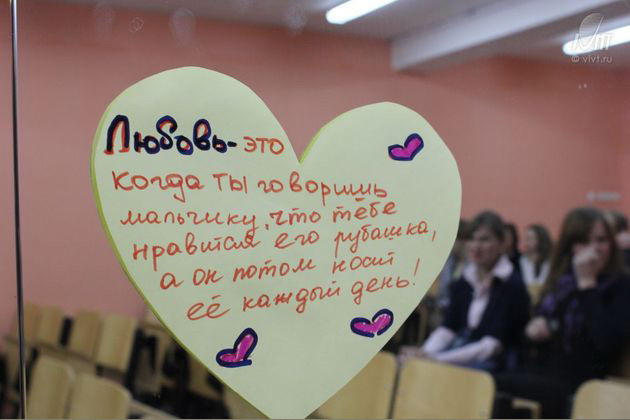 Любовь - это
когда ты говоришь
мальчику, что тебе
нравится его рубашка,
а он потом носит
её каждый день!
© vivt.ru